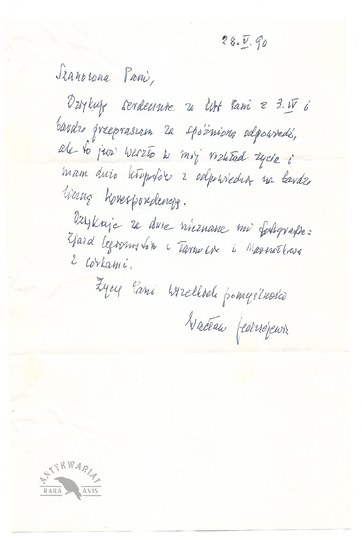 28.V.90
Szanowna Pani,
Dziękuję serdecznie za list Pani z 7.IV i
bardzo przepraszam za spóźnioną odpowiedź,
ale to już weszło w mój rozkład życia i
mam dużo kłopotów z odpowiedzią na bardzo
liczną korespondencję.
Dziękuję za dwie nieznane mi fotografie:
Zjazd Legionistów w Tarnowie i Marszałkowa
z córkami.
Życzę Pani wszelkich pomyślności
Wacław Jędrzejewicz
ANTYKWARIAT
RARA AVIS